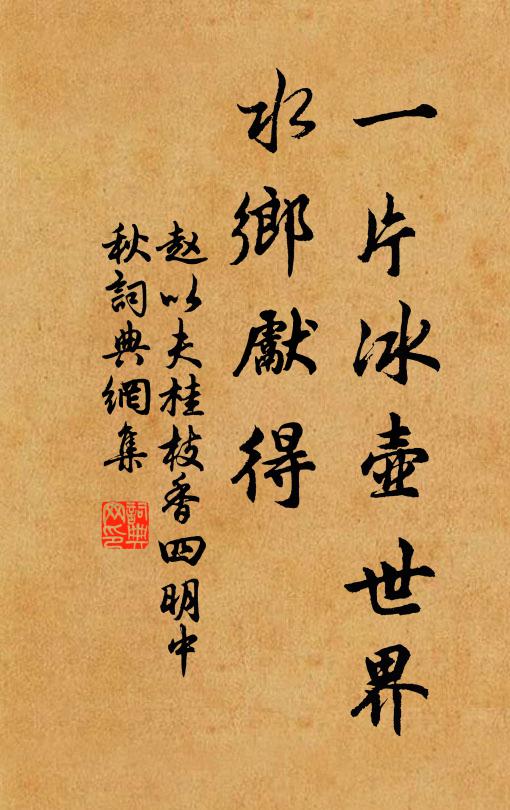 一片冰壺世界
水鄉獻得
赵以夫桂枝香四明中
秋詞典網集
詞典
网印